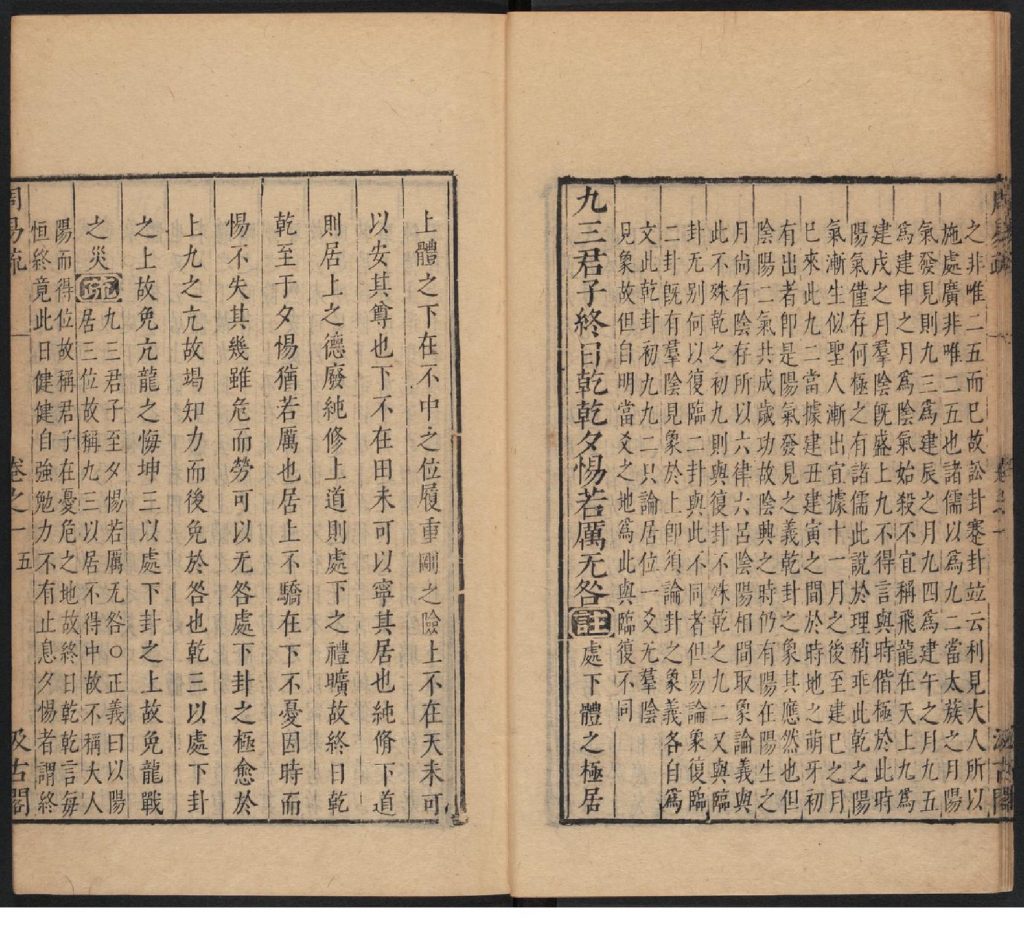 周易疏
卷之一
汲古閣
之非唯二五而已故訟卦蹇卦竝云利見大人所以
施處廣非唯二五也諸儒以為九二當太蔟之月陽
氣發見則九三為建辰之月九四為建午之月九五
為建申之月為陰氣始殺不宜稱飛龍在天上九為
建戌之月羣陰既盛上九不得言與時偕極於此時
陽氣僅存何極之有諸儒此說於理稍乖此乾之陽
氣漸生似聖人漸出宜據十一月之後至建巳之月
已來此九二當據建丑建寅之間於時地之萌牙初
有出者卽是陽氣發見之義乾卦之象其應然也但
陰陽二氣共成歲功故陰興之時仍有陽在陽生之
月尚有陰存所以六律六呂陰陽相間取象論義與
此不殊乾之初九則與復卦不殊乾之九二又與臨
卦无别何以復臨二卦與此不同者但易論象復臨
二卦既有羣陰見象於上卽須論卦之象義各自為
文此乾卦初九九二只論居位一爻无羣陰
見象故但自明當爻之地為此與臨復不同
九三君子終日乾乾夕惕若厲无咎註處下體之極居
上體之下在不中之位履重剛之險上不在天未可
以安其尊也下不在田未可以寧其居也純脩下道
則居上之德廢純修上道則處下之禮曠故終日乾
乾至于夕惕猶若厲也居上不驕在下不憂因時而
惕不失其幾雖危而勞可以无咎處下卦之極愈於
上九之亢故竭知力而後免於咎也乾三以處下卦
之上故免亢龍之悔坤三以處下卦之上故免龍戰
之災疏九三君子至夕惕若厲无咎○正義曰以陽
居三位故稱九三以居不得中故不稱大人
陽而得位故稱君子在憂危之地故終日乾乾言每
恒終竟此日健健自強勉力不有止息夕惕者謂終
周易疏
卷之一
五
汲古閣